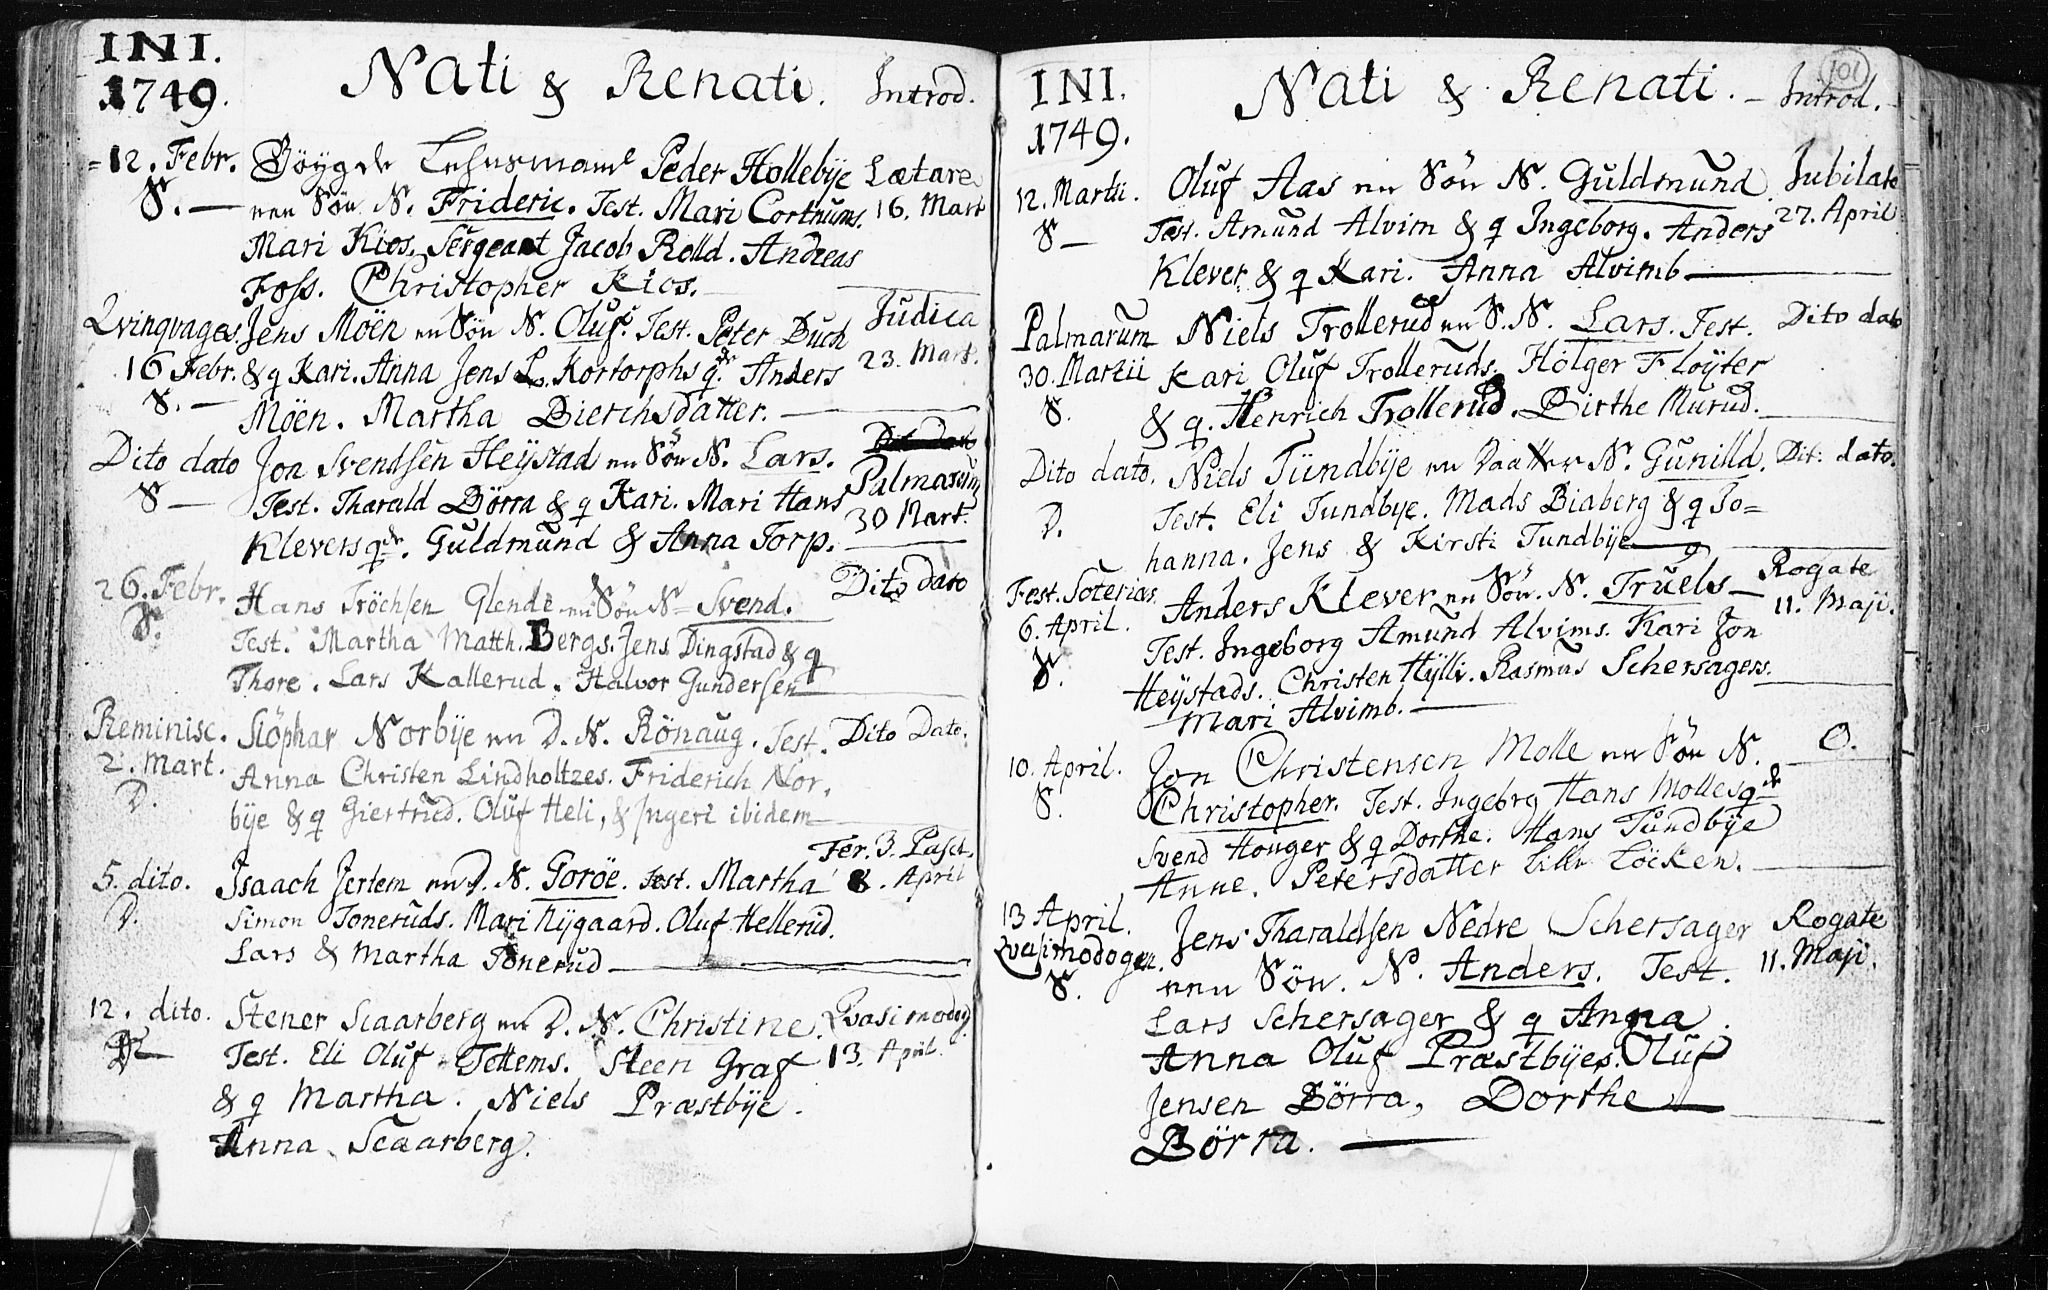 INI.
1749.
Nati & Renati. Introd.
12. Febr. Böygde Lehnsmand Peder Hollebÿe Lætare
S. — een Sön N. Frideric. Test. Mari Cortnums. 16. Mart
Mari Kios. Sergeant Jacob Rolld. Andreas
Foss. Christopher Kios.
Qvinqvages. Jens Möen en Sön N. Oluf. Test. Peter Buch Judica
16 Febr. & q Kari. Anna Jens L. Kortorphs qde. Anders 23. Mart.
S. — Möen. Martha Dierichsdatter.
Dito dato Jon Svendsen Heÿstad en Sön N. Lars. Palmarum
S — Test. Tharald Börra & q Kari. Mari Hans 30 Mart.
Klevers qde. Guldmund & Anna Torp.
26. Febr. Hans Tröchsen Glende en Sön N. Svend. Dito dato
S. Test. Martha Matth. Bergs. Jens Dingstad & q
Thore. Lars Kallerud. Halvor Gundersen
Reminisc. Slöphar Norbÿe en D. N. Rönaug. Test. Dito Dato.
2. Mart. Anna Christen Lindholtzes. Friderich Nor-
D. bÿe & q Giertrud. Oluf Heli, & Ingeri ibidem
Fer. 3. Pasch.
5. dito. Isaach Jertem en D. N. Goröe. Test. Martha 8. April
D. Simon Toneruds. Mari Nÿgaard. Oluf Hellerud.
Lars & Martha Tonerud
12. dito. Stener Scaarberg en D. N. Christine. Qvasimodog.
D Test. Eli Oluf Tettems. Steen Graf 13. April.
& q Martha. Niels Præstbÿe.
Anna Scaarberg.
101
INI.
1749.
Nati & Renati. Introd.
12. Martii. Oluf Aas en Sön N. Guldmund. Jubilate
S — Test. Amund Alvim & q Ingeborg. Anders 27. April
Klever & q Kari. Anna Alvimb
Palmarum Niels Trollerud en S. N. Lars. Test. Dito dato
30. Martii Kari Oluf Trolleruds. Holger Floÿter
S. & q. Henrich Trollerud. Birthe Murud.
Dito dato. Niels Tundbÿe en Daatter N. Gunilld. Dit: dato.
D. Test. Eli Tundbye. Mads Biaberg & q Jo=
hanna. Jens & Kirsti Tundbÿe
Fest. Soterias Anders Klever en Sön. N. Truels — Rogate
6. April. Test. Ingeborg Amund Alvims. Kari Jon 11. Maji.
S. Heÿstads. Christen Hÿlli. Rasmus Schersagers.
Mari Alvimb.
10. April. Jon Christensen Molle en Sön N. O.
S. Christopher. Test. Ingebrg Hans Molles qde
Svend Houger & q Dorthe. Hans Tundbÿe
Anne. Petersdatter Löcken.
13 April. Jens Tharaldsen Nedre Schersager Rogate
Qvasimodogen. een Sön. N. Anders. Test. 11. Maji.
S. Lars Schersager & q Anna.
Anna Oluf Præstbÿes. Oluf
Jensen Börra, Dorthe
Börra.